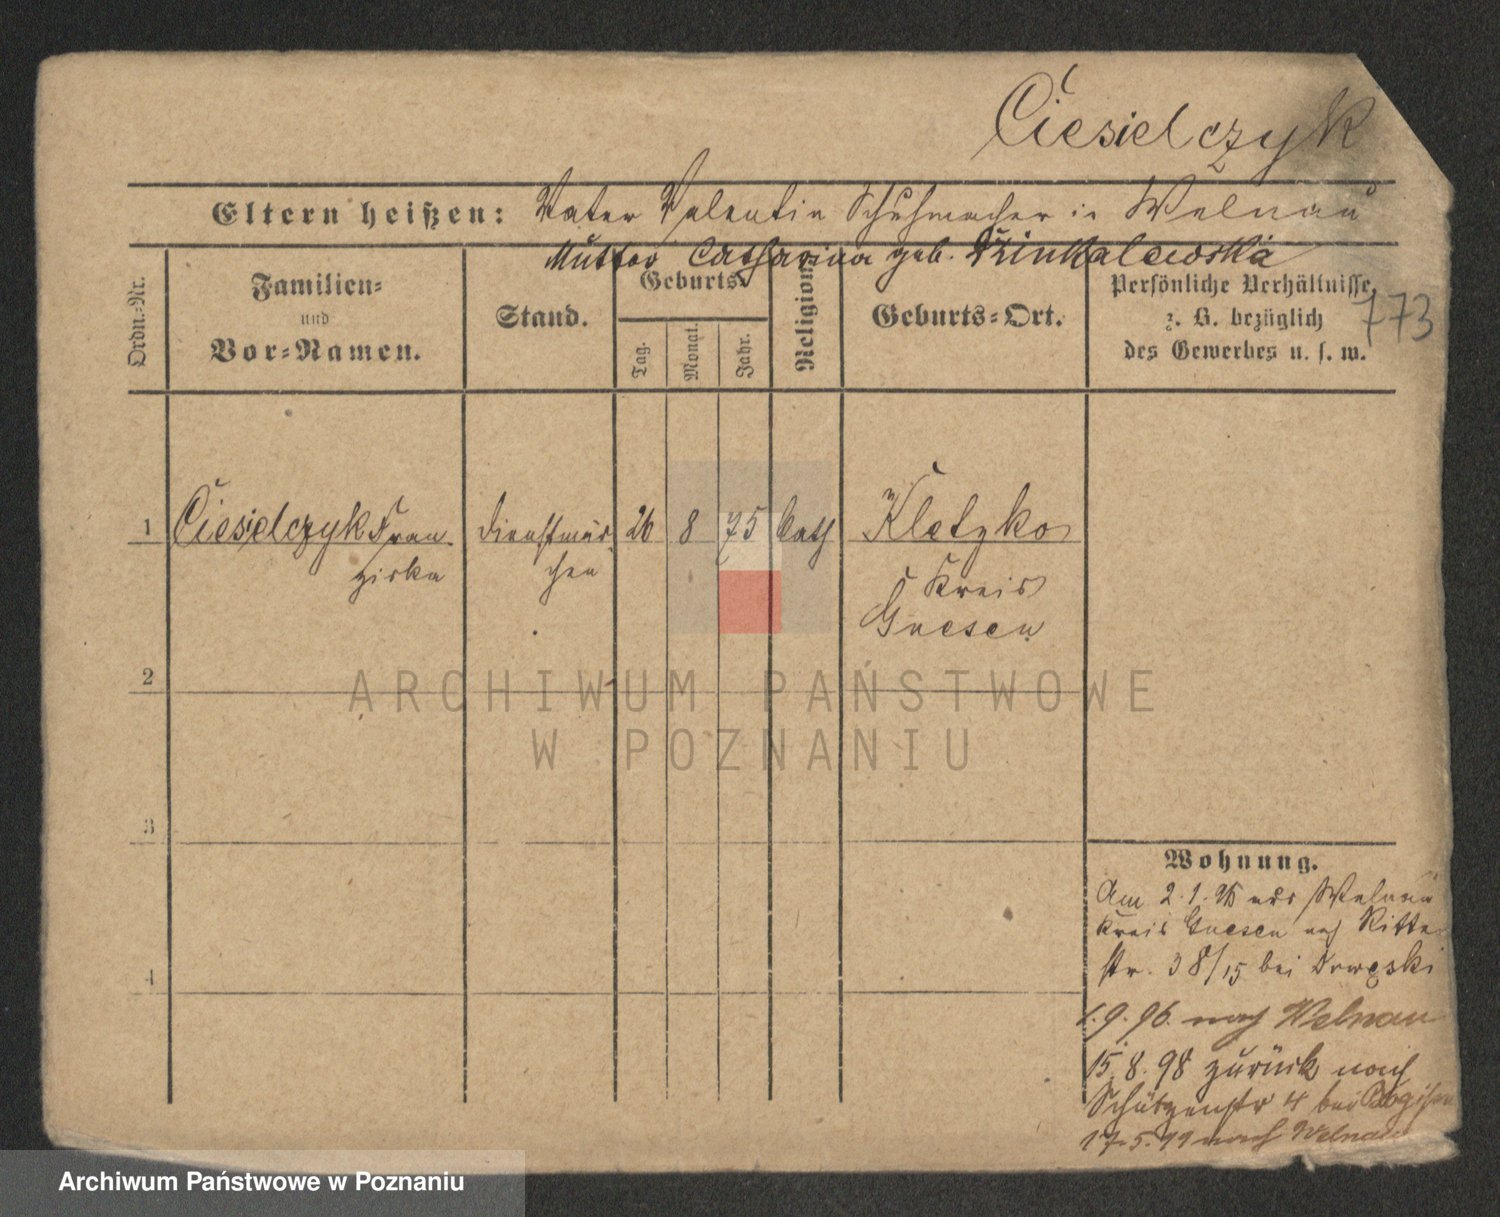 Ciesielczyk
Eltern heißen: Vater Valentin Schuhmacher in Welnau
Mutter Catharina geb.
Ordn.-Nr.
Familien-
und
Vor-Namen.
Stand.
Geburts-
Tag.
Monat.
Jahr.
Religion
Geburts-Ort.
Persönliche Verhältnisse,
z. B. bezüglich
des Gewerbes u. s. w.
773
1 Ciesielczyk Fran- Dienstmäd- 26 8 75 Kath Kletzko
ziska chen Kreis
Gnesen
2
ARCHIWUM PAŃSTWOWE
W POZNANIU
3
Wohnung.
Am 2.1.96 aus Welnau
Kreis Gnesen nach Ritter
str. 38/15 bei
1.9.96. nach Welnau
4
15.8.98 zurück nach
Schützenstr 4 bei
17.5.99 nach Welnau
Archiwum Państwowe w Poznaniu